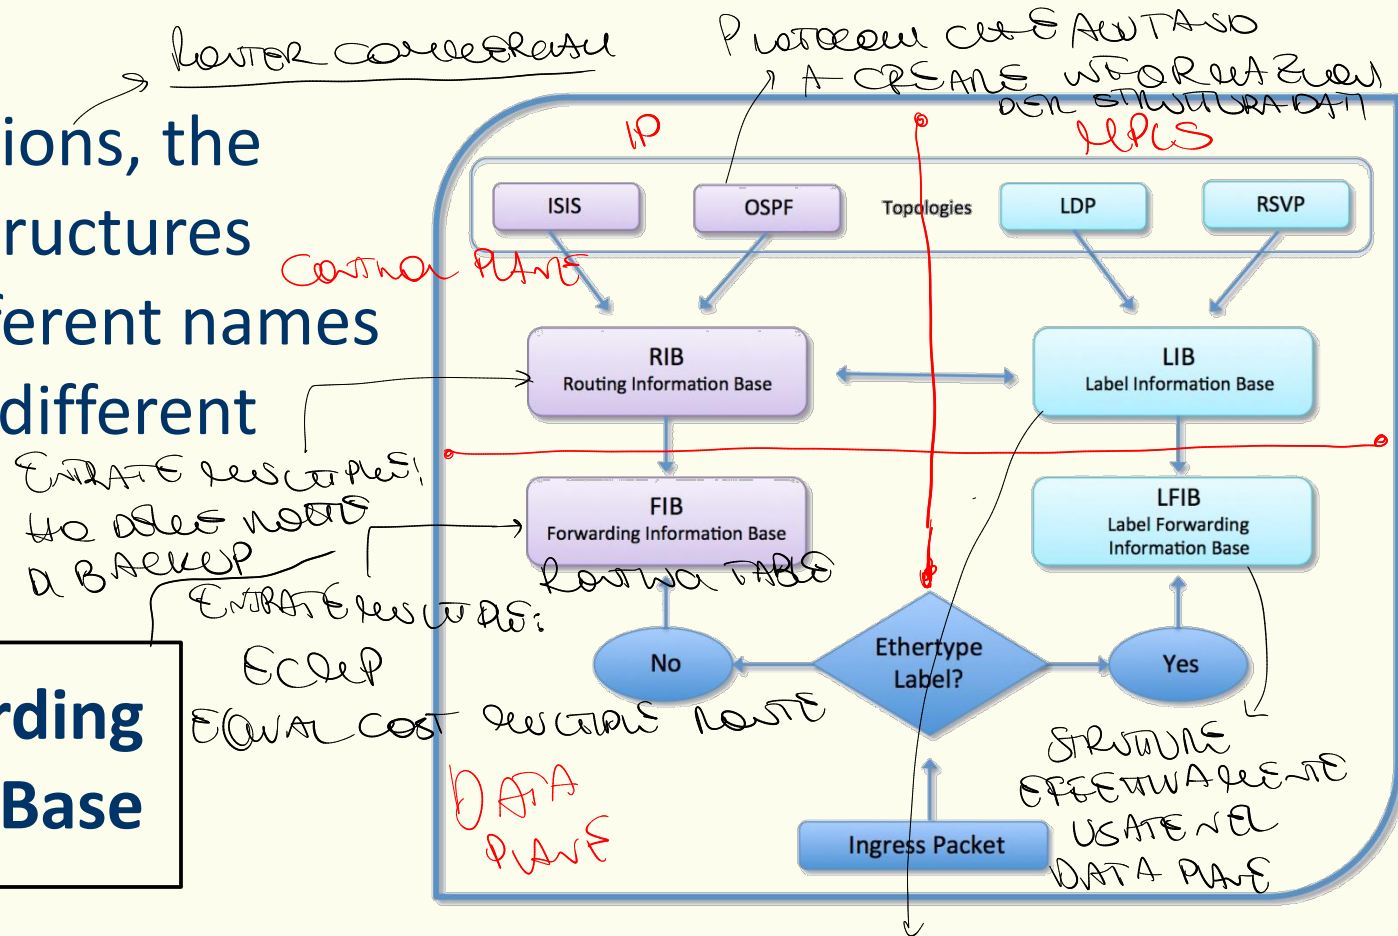 ROUTER COMMERCIALI
PROTOCOLLI CHE AIUTANO
A CREARE INFORMAZIONI
DELL STRUTTURA DATI
IP
MPLS
tions, the
ructures
CONTROL PLANE
ferent names
different
ISIS
OSPF
Topologies
LDP
RSVP
RIB
Routing Information Base
LIB
Label Information Base
ENTRATE MULTIPLE:
HO DELLE ROTTE
DI BACKUP
FIB
Forwarding Information Base
ROUTING TABLE
LFIB
Label Forwarding
Information Base
ENTRATE MULTIPLE:
ECMP
EQUAL COST MULTIPLE ROUTE
No
Ethertype
Label?
Yes
rding
Base
DATA
PLANE
Ingress Packet
STRUTTURE
EFFETTIVAMENTE
USATE NEL
DATA PLANE